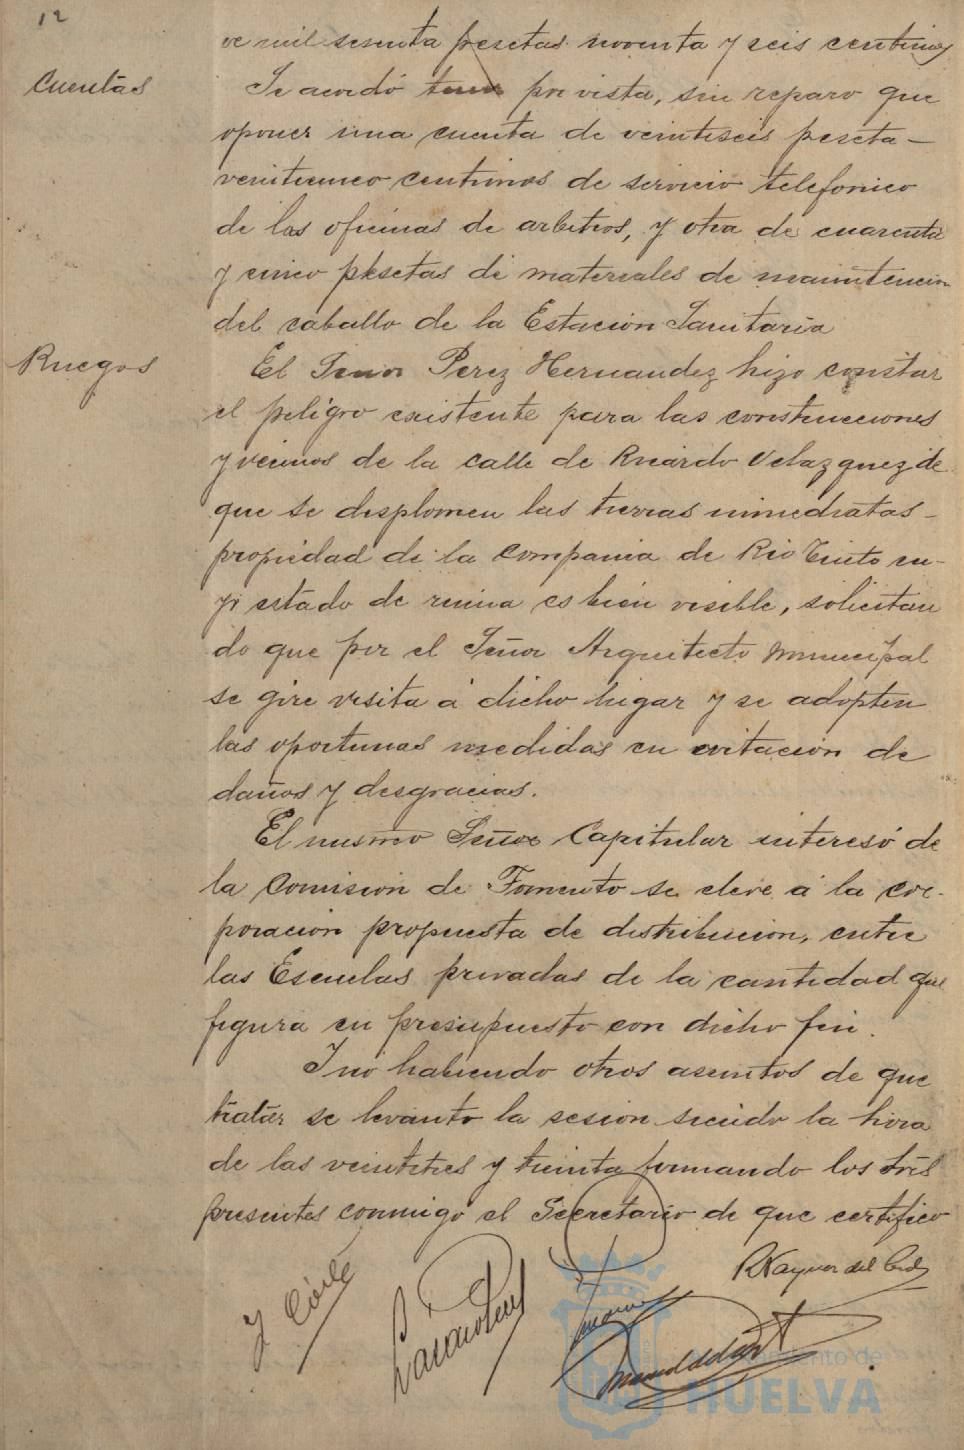 12
ve mil sesenta pesetas noventa y seis centimos
Cuentas
Se acordó por vista, sin reparo que
oponer una cuenta de veintiseis peseta-
veinticinco centimos de servicio telefonico
de las oficinas de arbitros, y otra de cuarenta
y cinco pesetas de materiales de manutencion
del caballo de la Estación Sanitaria
Ruegos
El Señor Perez Hernandez hizo constar
el peligro existente para las construcciones
y vecinos de la calle de Ricardo Velazquez de
que se desplomen las tierras inmediatas-
propiedad de la Compania de Rio Tinto cu-
yo estado de ruina es bien visible, solicitan
do que por el Señor Arquitecto Municipal
se gire visita á dicho lugar y se adopten
las oportunas medidas en evitación de
daños y desgracias.
El mismo Señor Capitular interesó de
la Comision de Fomento se eleve á la cor-
poracion propuesta de distribucion, entre
las Escuelas privadas de la cantidad que
figura en presupuesto con dicho fin.
Y no habiendo otros asuntos de que
tratar se levanto la sesion siendo la hora
de las veintitres y treinta firmando los Srs
presentes conmigo el Secretario de que certifico
Ayuntamiento de
HUELVA